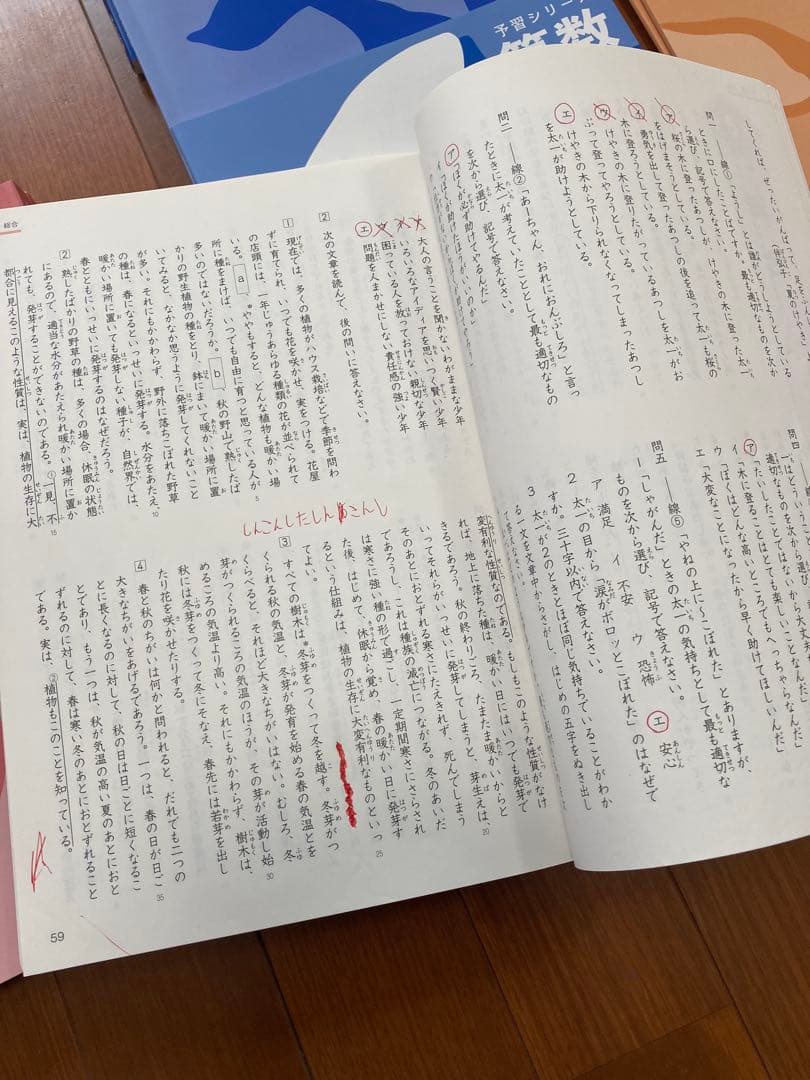 予習シリーズ
算数
してくれば、ぜったいがんばって、
問一 ――線①「ようし」とは誰がどうしようとしている
ときに口にしたことばですか。最も適切なものを次か
ら選び、記号で答えなさい。
ア 桜の木に登ったあつしが、けやきの木に登った太一
をはげまそうとしている。
イ 勇気を出して登ったあつしの後を追って太一も桜の
木に登ろうとしている。
ウ けやきの木に登りたがっているあつしを太一がお
ぶって登ってやろうとしている。
エ けやきの木から下りられなくなってしまったあつし
を太一が助けようとしている。
問二 ――線②「あーちゃん、おれにおんぶしろ」と言っ
たときに太一が考えていたこととして最も適切なもの
を次から選び、記号で答えなさい。
ア ぼくが必ず助けてやるんだ」
問四
適切なものを次から選び、記号で答えなさい。
ア 「たいしたことではないから大丈夫
イ 「木に登ることはとても楽しいことなんだ」
ウ 「ぼくはどんな高いところでもへっちゃらなんだ」
エ 「大変なことになったから早く助けてほしいんだ」
問五 ――線⑤「やねの上に～こぼれた」とありますが、
1 「しゃがんだ」ときの太一の気持ちとして最も適切な
ものを次から選び、記号で答えなさい。
ア 満足 イ 不安 ウ 恐怖 エ 安心
2 太一の目から「涙がポロッとこぼれた」のはなぜで
すか。三十字以内で答えなさい。
3 太一が2のときとほぼ同じ気持ちでいることがわか
る一文を文章中からさがし、はじめの五字をぬき出し
て答えなさい。
総合
大人の言うことを聞かないわがままな少年
いろいろなアイディアを思いつく賢い少年
困っている人を放っておけない親切な少年
エ 問題を人まかせにしない責任感の強い少年
2 次の文章を読んで、後の問いに答えなさい。
1 現在では、多くの植物がハウス栽培などで季節を問わ
ずに育てられ、いつでも花を咲かせ、実をつける。花屋
の店頭には、一年じゅうあらゆる種類の花が並べられて
いる。 a 。*ややもすると、どんな植物も暖かい場
所に種をまけば、いつでも自由に育つと思っている人が
多いのではないだろうか。 b 、秋の野山で熟したば
かりの野生植物の種をとり、鉢にまいて暖かい場所に置
いてみると、なかなか思うように発芽してくれないこと
が多い。それにもかかわらず、野外に落ちこぼれた野草
の種は、春になるといっせいに発芽する。水分をあたえ、
暖かい場所に置いても発芽しない種子が、自然界では、
春とともにいっせいに発芽するのはなぜだろう。
2 熟したばかりの野草の種は、多くの場合、休眠の状態
にあるので、適当な水分があたえられ暖かい場所に置か
れても、発芽することができないのである。①一見、不
都合に見えるこのような性質は、実は、植物の生存に大
しんこんしたしん
変有利な性質なのである。もしもこのような性質がなけ
れば、地上に落ちた種は、暖かい日にはいつでも発芽で
きるであろう。秋の終わりごろ、たまたま暖かいからと
いってそれらがいっせいに発芽してしまうと、芽生えは、
そのあとにおとずれる寒さにたえきれず、死んでしまう
であろうし、これは種族の滅亡につながる。冬のあいだ
は寒さに強い種の形で過ごし、一定期間寒さにさらされ
た後、はじめて、休眠から覚め、春の暖かい日に発芽す
るという仕組みは、植物の生存に大変有利なものといっ
てよい。
3 すべての樹木は*冬芽をつくって冬を越す。冬芽がつ
くられる秋の気温と、冬芽が発育を始める春の気温とを
くらべると、それほど大きなちがいはない。むしろ、冬
芽がつくられるころの気温のほうが、その芽が活動し始
めるころの気温より高い。それにもかかわらず、樹木は、
秋には冬芽をつくって冬にそなえ、春先には若芽を出し
たり花を咲かせたりする。
4 春と秋のちがいは何かと問われると、だれでも二つの
大きなちがいをあげるであろう。一つは、春の日が日ご
とに長くなるのに対して、秋の日は日ごとに短くなるこ
とであり、もう一つは、秋が気温の高い夏のあとにおと
ずれるのに対して、春は寒い冬のあとにおとずれること
である。実は、②植物もこのことを知っている。
5
10
15
20
25
30
35
59